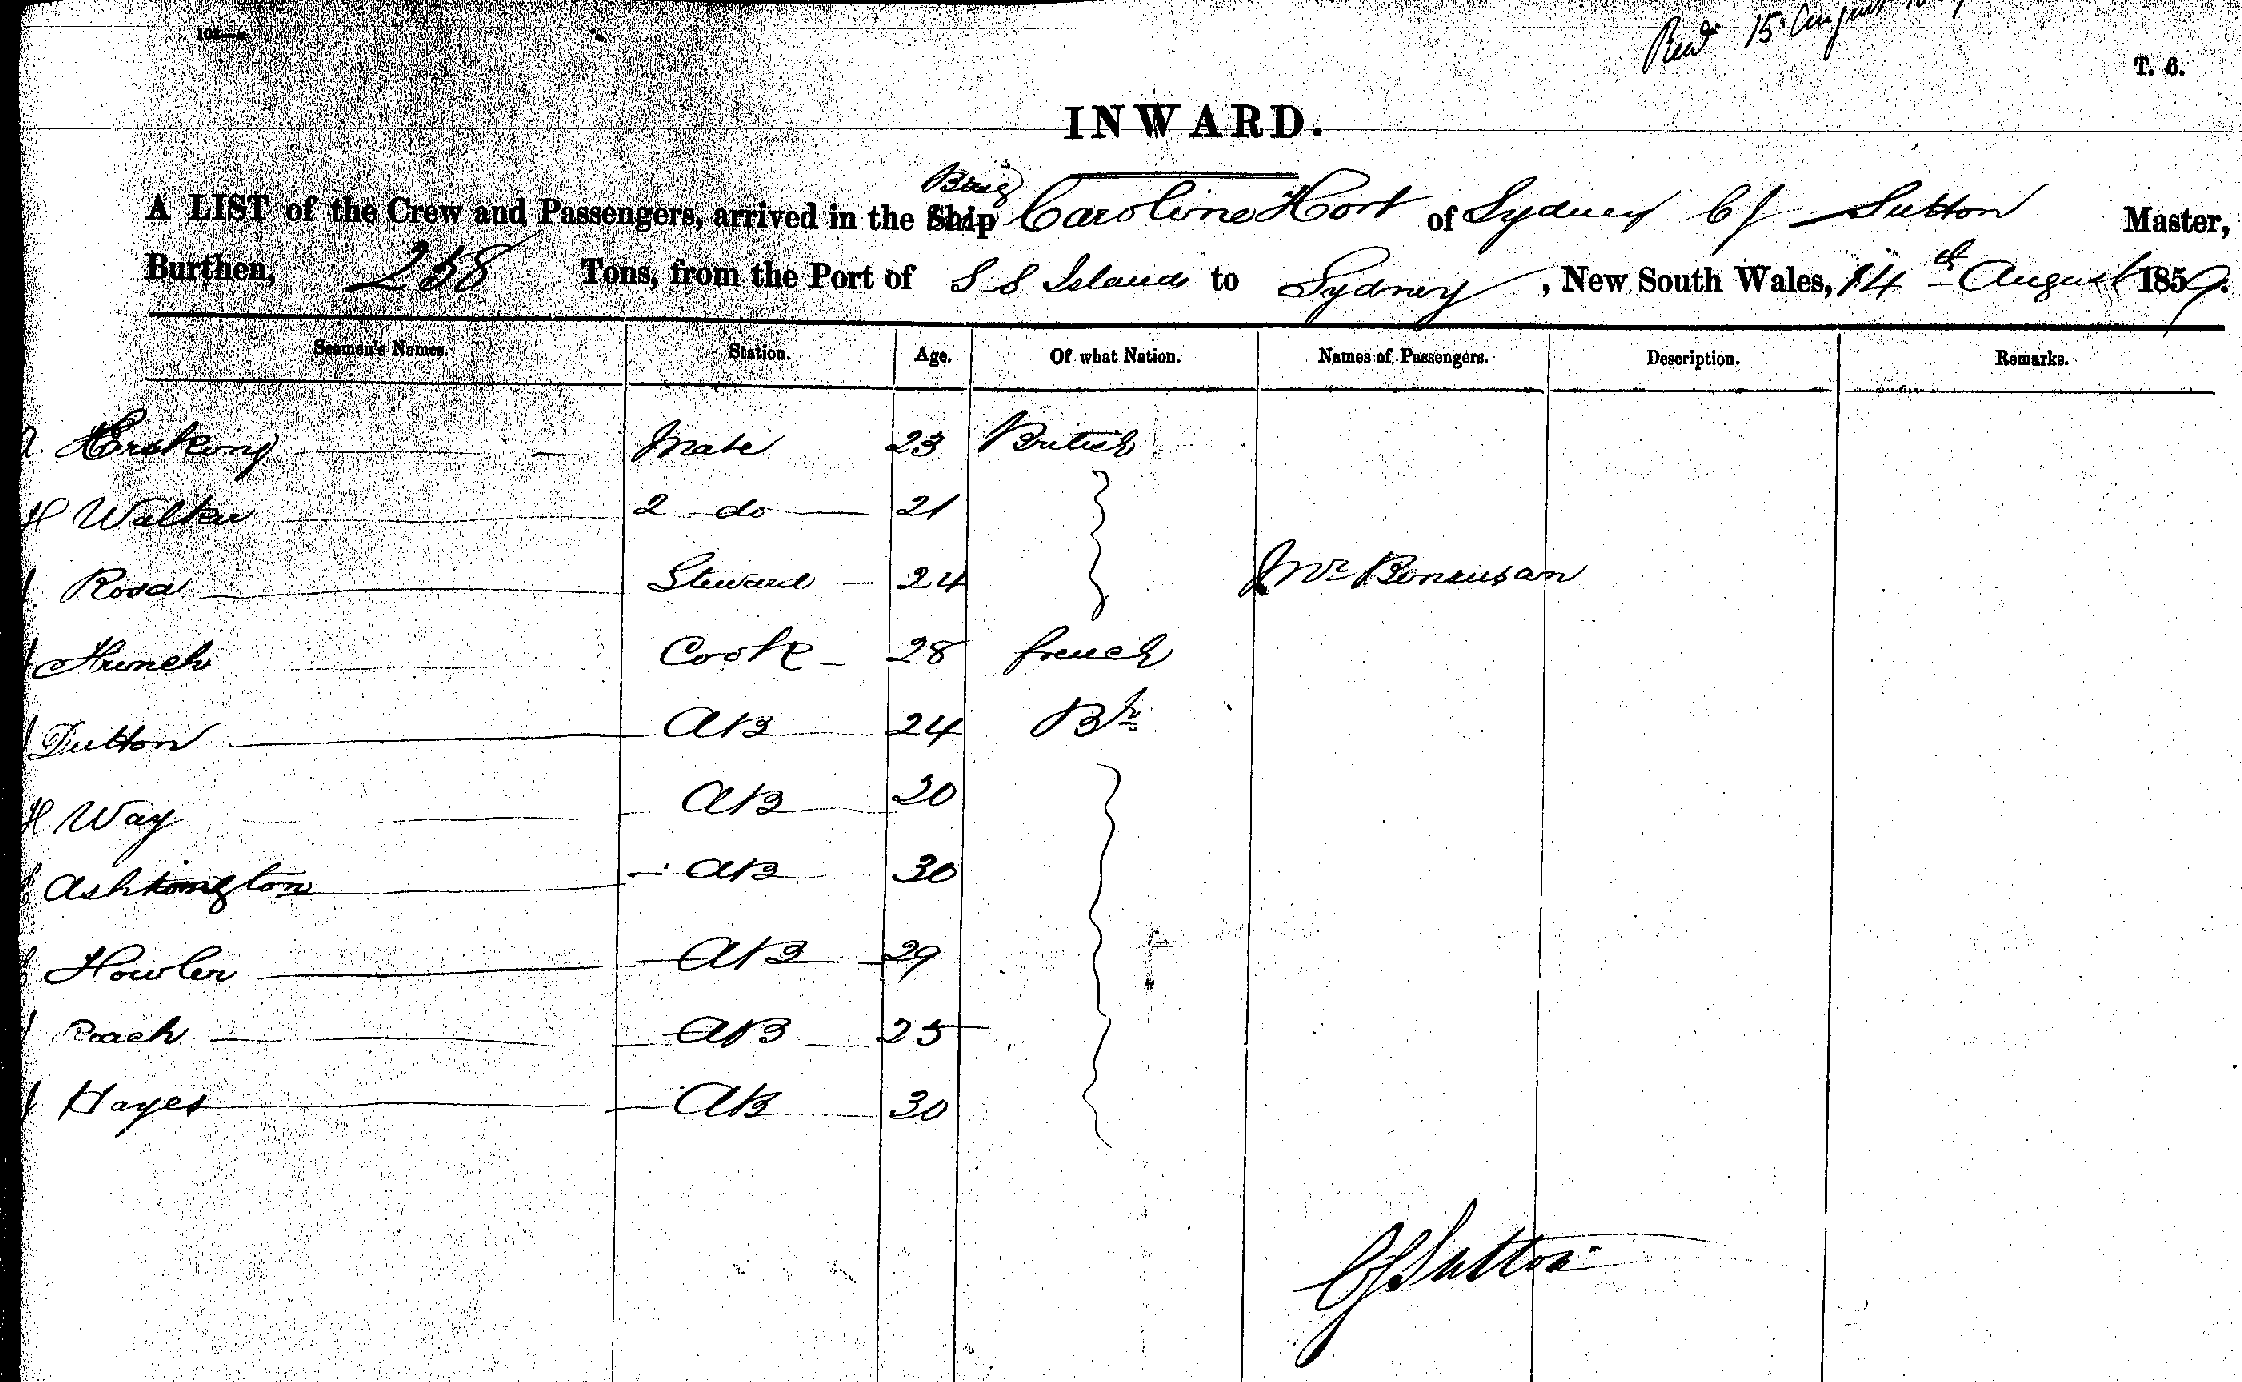 15 August
T. 6.
INWARD.
Brig
A LIST of the Crew and Passengers, arrived in the Ship Caroline Hort of Sydney CJ Sutton Master,
Burthen, 258 Tons, from the Port of S S Islands to Sydney, New South Wales, 14th August 1859.
Seamen's Names. Station. Age. Of what Nation. Names of Passengers. Description. Remarks.
Mate 23 British
H Walker 2 do 21
Rosa Steward 24 Mr Bensusan
Cook 28 french
Dutton AB 24 Bh
H Way AB 30
Ashkington AB 30
Howler AB 29
Roach AB 25
Hayes AB 30
CJ Sutton